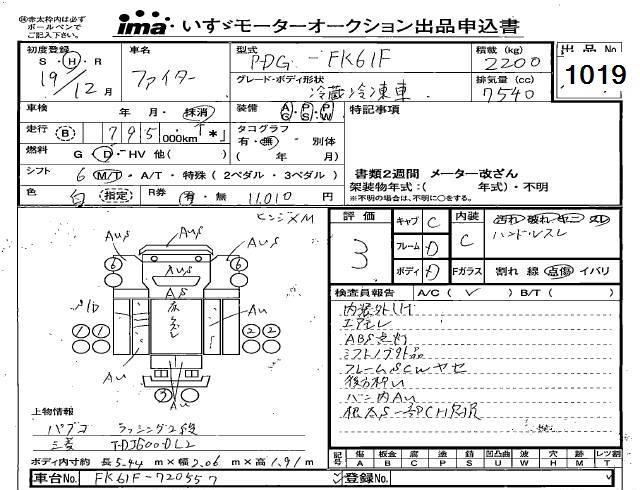 ㊟赤太枠内は必ず
ボールペンで
ご記入下さい。
ima いすゞモーターオークション出品申込書
初度登録 車名 型式 積載 (kg) 出品No
S・H・R ファイター PDG-FK61F 2200 1019
19/12月 グレード・ボディ形状 冷蔵冷凍車 排気量 (cc) 7540
車検 年 月・抹消 装備 AG・PS・PW 特記事項
走行 B 795,000km * タコグラフ 有・無 別体
燃料 G・D・HV 他( ) ( 年 月)
シフト 6 M/T・A/T・特殊 (2ペダル・3ペダル) 書類2週間 メーター改ざん
架装物年式:( 年式)・不明
色 白 指定 R券 有・無 11,010 円 ※不明の場合は、不明に○をする。
ヒンジ×M
評価 3 キャブ C 内装 C
ハンドルスレ
フレーム D
ボディ D Fガラス 割れ 線 点傷 イバリ
検査員報告 A/C ( ✓ ) B/T ( )
AuS
AuS AuS
6 6
AuS
AS
S/D Au
床
スレ
1 1 2 2
Au Au
3
Au
エアモレ
ABS点灯
シフトノブ外品
フレームSCWヤセ
バン内Au
上物情報
パブコ ラッシング2段
三菱 TDJS600DL2
ボディ内寸約 長5.44m×幅2.06m×高1.91m
記号 傷 板金 腐 塗 錆 凹凸曲 波 穴 時 レツ割
A B C P S U W H M T
車台No. FK61F-720557 登録No.